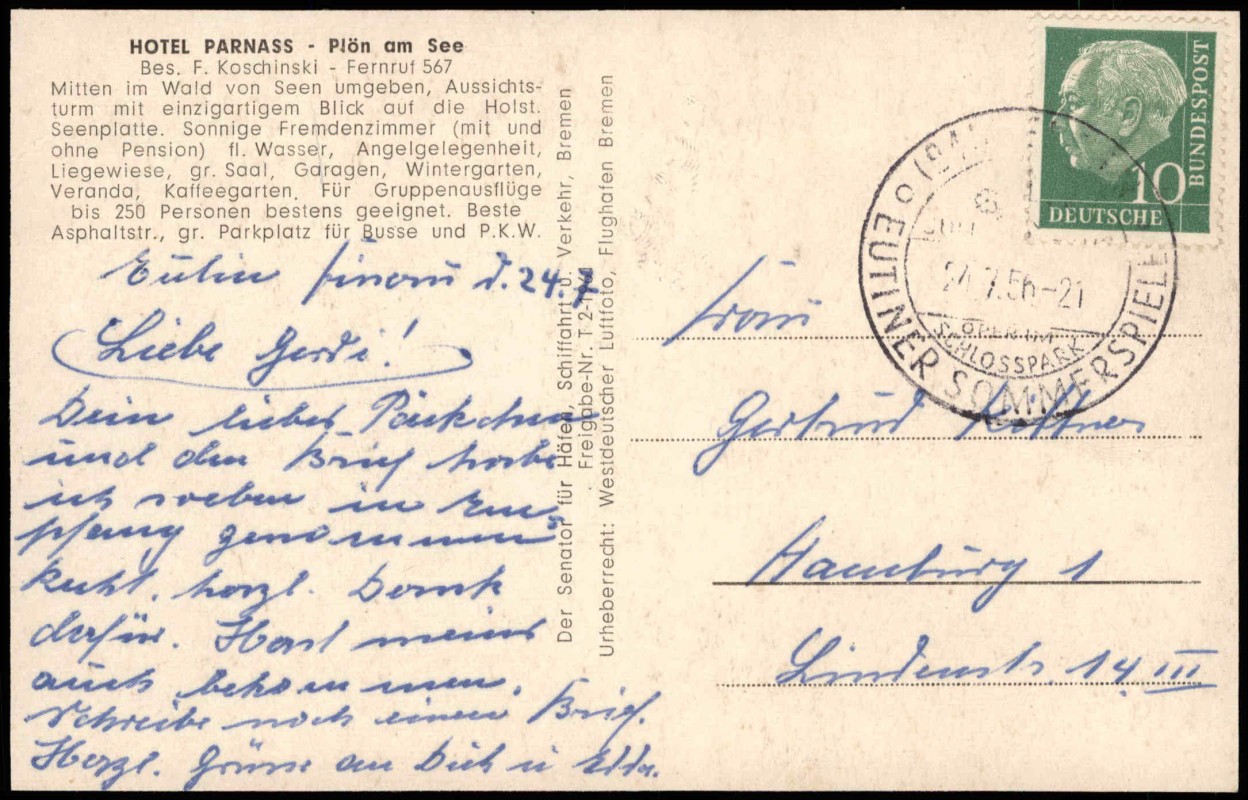 HOTEL PARNASS - Plön am See
Bes. F. Koschinski - Fernruf 567
Mitten im Wald von Seen umgeben, Aussichts-
turm mit einzigartigem Blick auf die Holst.
Seenplatte. Sonnige Fremdenzimmer (mit und
ohne Pension) fl. Wasser, Angelgelegenheit,
Liegewiese, gr. Saal, Garagen, Wintergarten,
Veranda, Kaffeegarten. Für Gruppenausflüge
bis 250 Personen bestens geeignet. Beste
Asphaltstr., gr. Parkplatz für Busse und P.K.W.
Eutin d. 24.7
Liebe Gerdi!
Dein liebes Päckchen
und den Brief habe
ich soeben in Em-
pfang genommen
herzl. Dank
dafür. Hast meins
auch bekommen.
Schreibe noch einen Brief.
Herzl. Grüsse an Dich u Edda.
Der Senator für Häfen, Schiffahrt u. Verkehr, Bremen
Freigabe-Nr. T 2-
Urheberrecht: Westdeutscher Luftfoto, Flughafen Bremen
DEUTSCHE
BUNDESPOST
10
EUTINER SOMMERSPIELE
24.7.56-21
OPER IM
SCHLOSSPARK
Frau
Gertrud
Hamburg 1
Lindenstr. 14 III